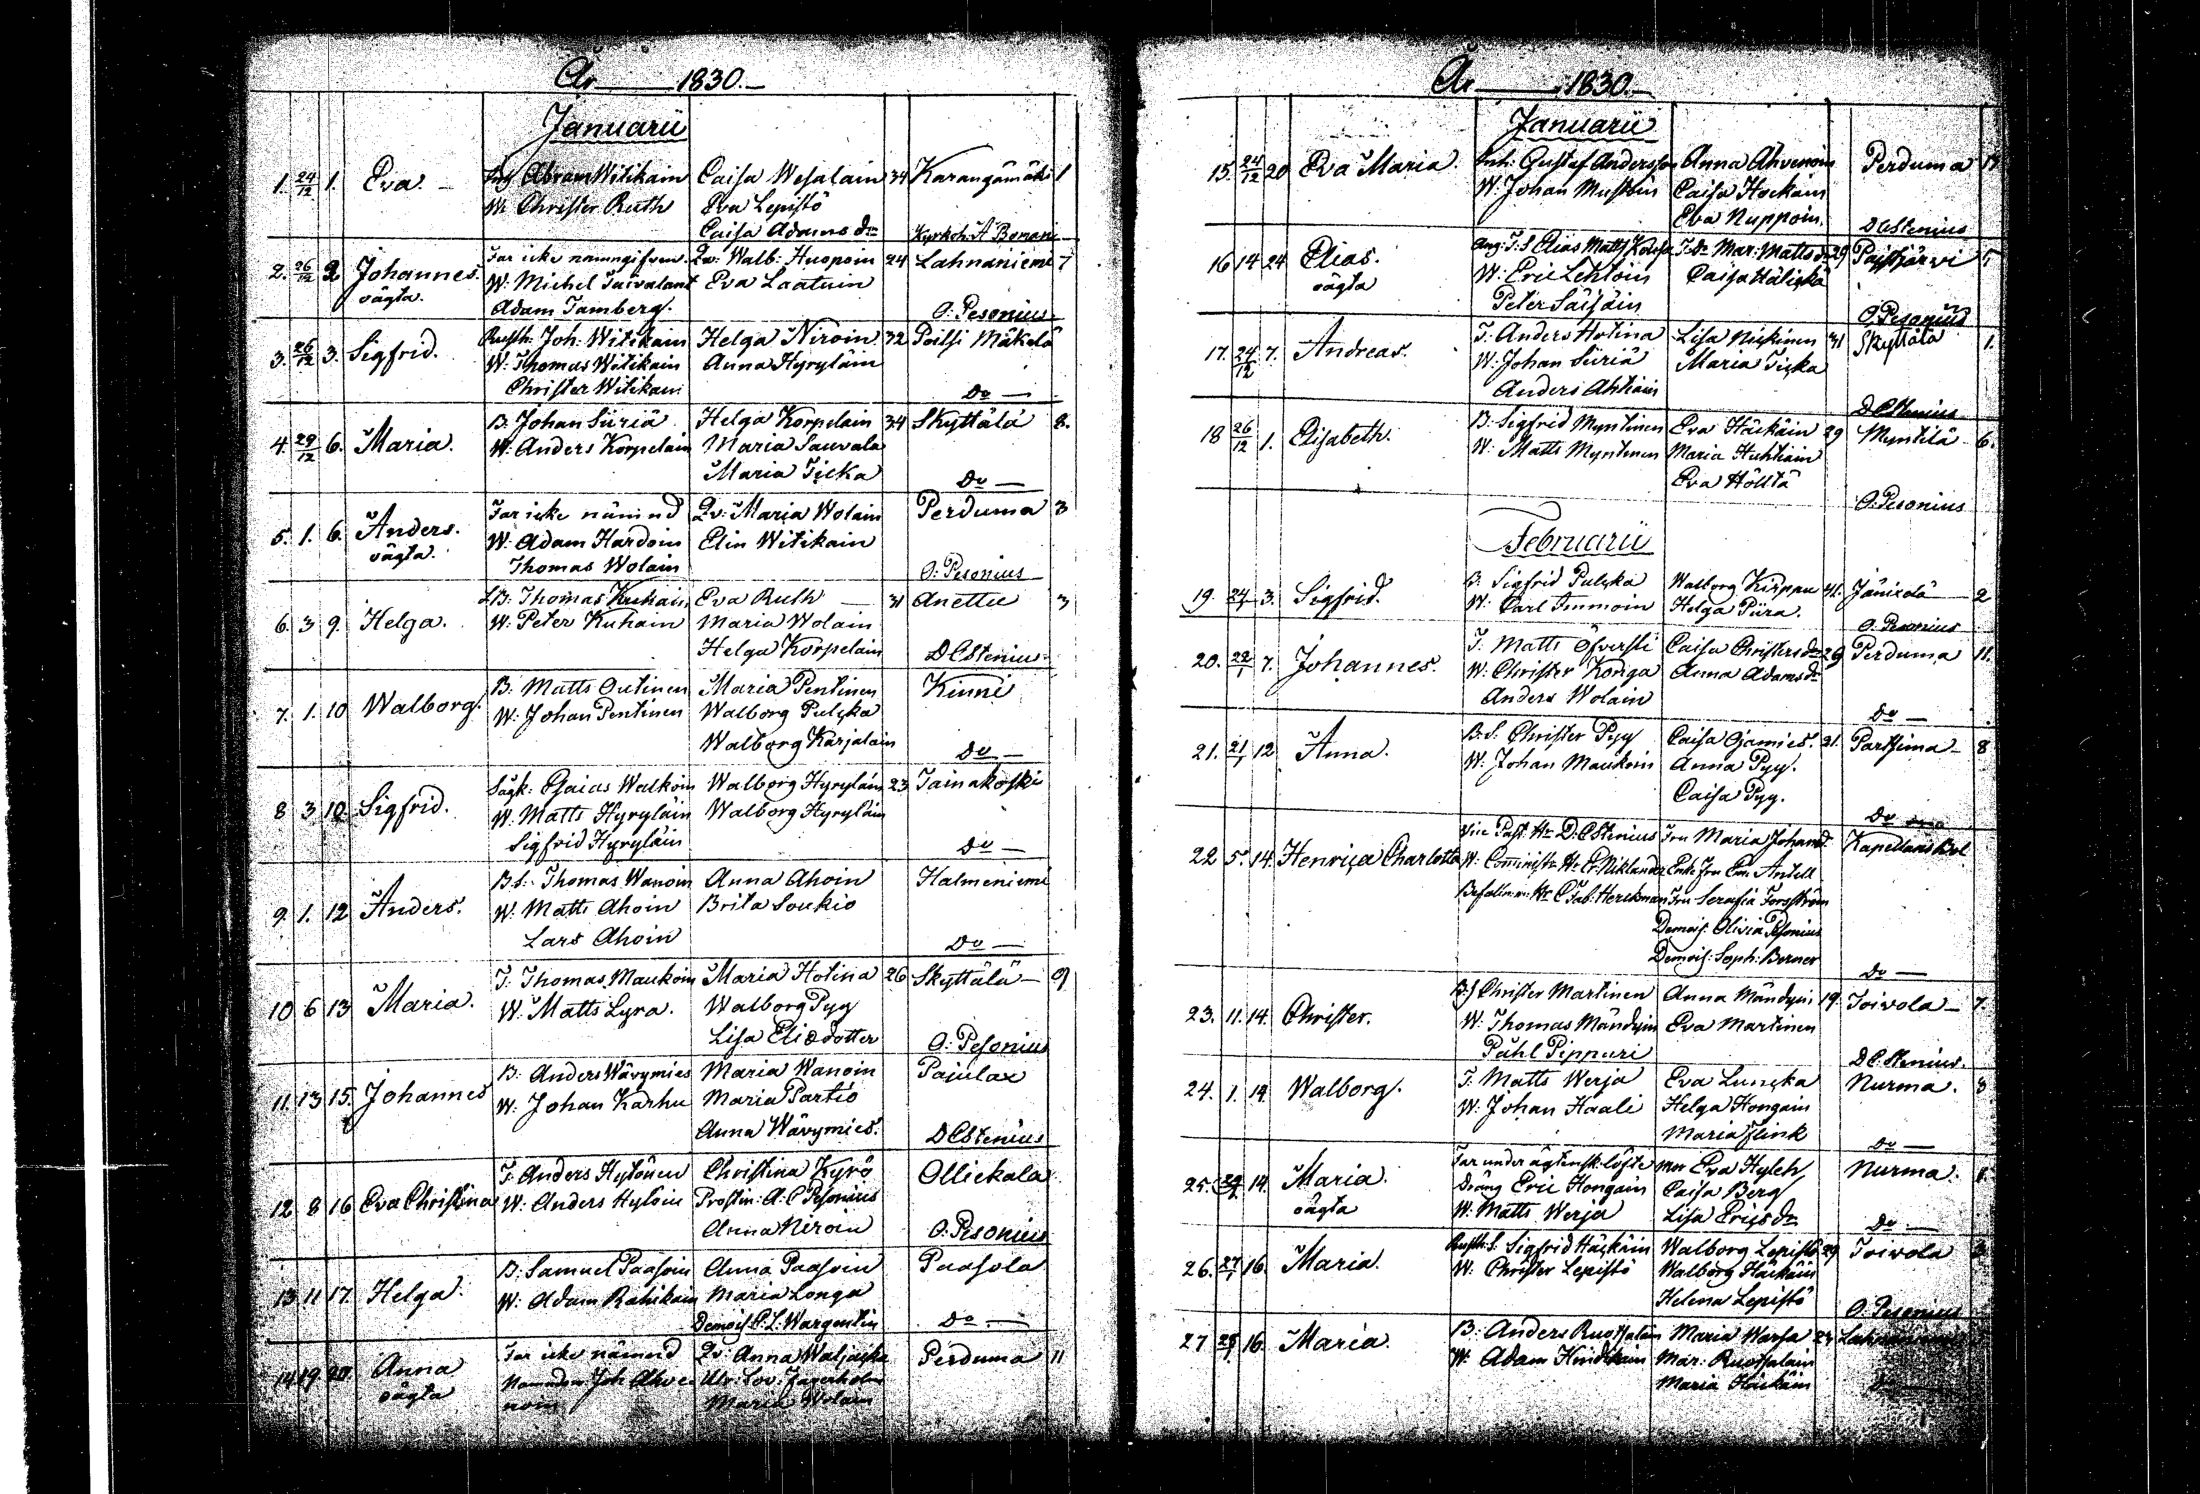 År 1830.
Januarii
1. 24/12 1. Eva. Abram Witikain Caisa Wesalain 34 Karangämäki 1
W. Christer Ruth Eva Lepistö
Caisa Adams dr Kyrkoh. A Boman
2. 26/12 2 Johannes. Far icke namngifven. Qv: Walb: Huopoin 24 Lahnaniemi 7
oägta. W. Michel Taivalant Eva Laatuin
Adam Tamberg. O: Pesonius
3. 26/12 3. Sigfrid. Rusth: Joh: Witikain Helga Niroin 32 Poitsi Mäkelä
W. Thomas Witikain Anna Hyryläin
Christer Witikain Do
4. 29/12 6. Maria. B. Johan Siiriä Helga Korpelain 34 Skyttälä 8.
W. Anders Korpelain Maria Sauvala
Maria Ticka Do
5. 1. 6. Anders. Far icke nämnd Qv: Maria Wolain Perduma 3
oägta. W. Adam Hardoin Elin Witikain
Thomas Wolain O: Pesonius
6. 3 9. Helga. LB: Thomas Kuhain Eva Ruth 31 Anettu 3
W. Peter Kuhain Maria Wolain
Helga Korpelain D Cstenius
7. 1. 10 Walborg. B: Matts Outinen Maria Pentinen Kinni
W. Johan Pentinen Walborg Pulcka
Walborg Karjalain Do
8 3 10. Sigfrid. Sågk: Esaias Walkoin Walborg Hyryläin 23 Tainakoski
W. Matts Hyryläin Walborg Hyryläin
Sigfrid Hyryläin Do
9. 1. 12 Anders. B.S. Thomas Wanoin Anna Ahoin Halmeniemi
W. Matts Ahoin Brita Soukio
Lars Ahoin Do
10 6 13 Maria. T. Thomas Maukoin Maria Hotina 26 Skyttälä 9
W. Matts Lyra. Walborg Pyy
Lisa Eliædotter O: Pesonius
11. 13 15. Johannes B. Anders Wävymies Maria Wanoin Pajulax
W. Johan Karhu Maria Partio
Anna Wävymies. D Cstenius
12 8 16 Eva Christina T. Anders Hytönen Christina Kyrö Olliekala
W. Anders Hytöin Prostin: A: C Pesonius
Anna Niroin O: Pesonius
13 11 17. Helga. B. Samuel Paasoin Anna Paasoin Paasola
W. Adam Rahikain Maria Longa
Demois. C. L. Wargentin Do
14 19. 20. Anna Far icke nämnd Qv: Anna Waljacka Perduma 11
oägta Joh Ahve Ulr: Lov: Fagerholm
noin Maria Wolain
År 1830.
Januarii
15. 24/12 20 Eva Maria. Inh: Gustaf Andersson Anna Ahvenoin Perduma 11
W. Johan Mustoin Caisa Hockain
Eva Nuppoin. D Cstenius
16 14 24 Elias. T. S Elias Matts T. dr Mar: Matts dr 29 Paistjärvi 5
oägta W. Eric Lehtoin Caisa Hälickä
Peter Säisäin O. Pesonius
17. 24/12 7. Andreas. T. Anders Hotina Lisa Nickinen 31 Skyttälä 1.
W. Johan Siiriä Maria Ticka
Anders Ahtiain D Cstenius
18 26/12 1. Elisabeth. B. Sigfrid Myntinen Eva Häckäin 29 Myntilä 6.
W. Matts Myntinen Maria Huhtiain
Eva Hölttä
O. Pesonius
Februarii
19. 24/1 3. Sigfrid. B. Sigfrid Pulcka Walborg Kirppu 41. Jänicolä 2
W. Carl Immoin Helga Piira. O. Pesonius
20. 22/1 7. Johannes. T. Matts Öfversti Caisa Christersdr 29 Perduma 11.
W. Christer Konga Anna Adamsdr
Anders Wolain Do
21. 21/1 12 Anna. B.S. Christer Pyy Caisa Ojamies. 21. Partsima 8
W. Johan Maukoin Anna Pyy.
Caisa Pyy. Do
22 5. 14. Henrica Charlotta Vice Past. Hr D. Cstenius Fru Maria Johansd Kapellans Bol
W. Cominist. Hr C. Niklander Enke Fru Em: Antell
Befallnm: Hr C Fab: Herckman Fru Serafia Forsström
Demois: Olivia Pesonius
Demois: Soph: Berner Do
23. 11. 14. Christer. B.S Christer Martinen Anna Mändyin 19. Toivola 7.
W. Thomas Mändyin Eva Martinen
Påhl Pippuri D C. stenius.
24. 1. 14. Walborg. T. Matts Werja Eva Luncka Nurma. 3
W. Johan Haali Helga Hongain
Maria Flink Do
25. 29/1 14. Maria. Far under ägtensk: löfte Eva Hyleh Nurma. 1.
oägta Dräng Eric Hongain Caisa Berg
W. Matts Werja Lisa Ericsdr Do
26. 27/1 16. Maria. Rusth: S. Sigfrid Häckäin Walborg Lepistö 29 Toivola 3
W. Christer Lepistö Walborg Häckäin
Helena Lepistö O. Pesonius
27 28/1 16. Maria. B: Anders Ruotsalain Maria Warsa 24
W. Adam Hindikain Mar: Ruotsalain
Maria Häckäin Do